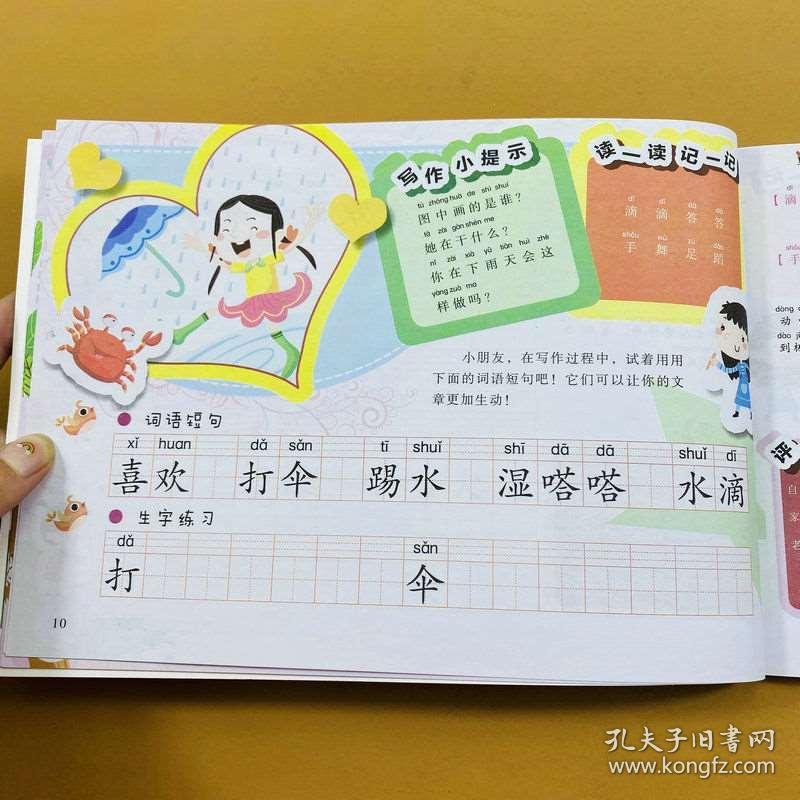 写作小提示
tú zhōng huà de shì shuí
图中画的是谁？
tā zài gàn shén me
她在干什么？
nǐ zài xià yǔ tiān huì zhè
你在下雨天会这
yàng zuò ma
样做吗？
读一读 记一记
dī dī dā dā
滴滴答答
shǒu wǔ zú dǎo
手舞足蹈
小朋友，在写作过程中，试着用用
下面的词语短句吧！它们可以让你的文
章更加生动！
词语短句
xǐ huan dǎ sǎn tī shuǐ shī dā dā shuǐ dī
喜欢 打伞 踢水 湿嗒嗒 水滴
生字练习
dǎ sǎn
打 伞
10
dī
【滴
shǒu
【手
dòng
动
dào
到
评
自
家
若
孔夫子旧书网
www.kongfz.com